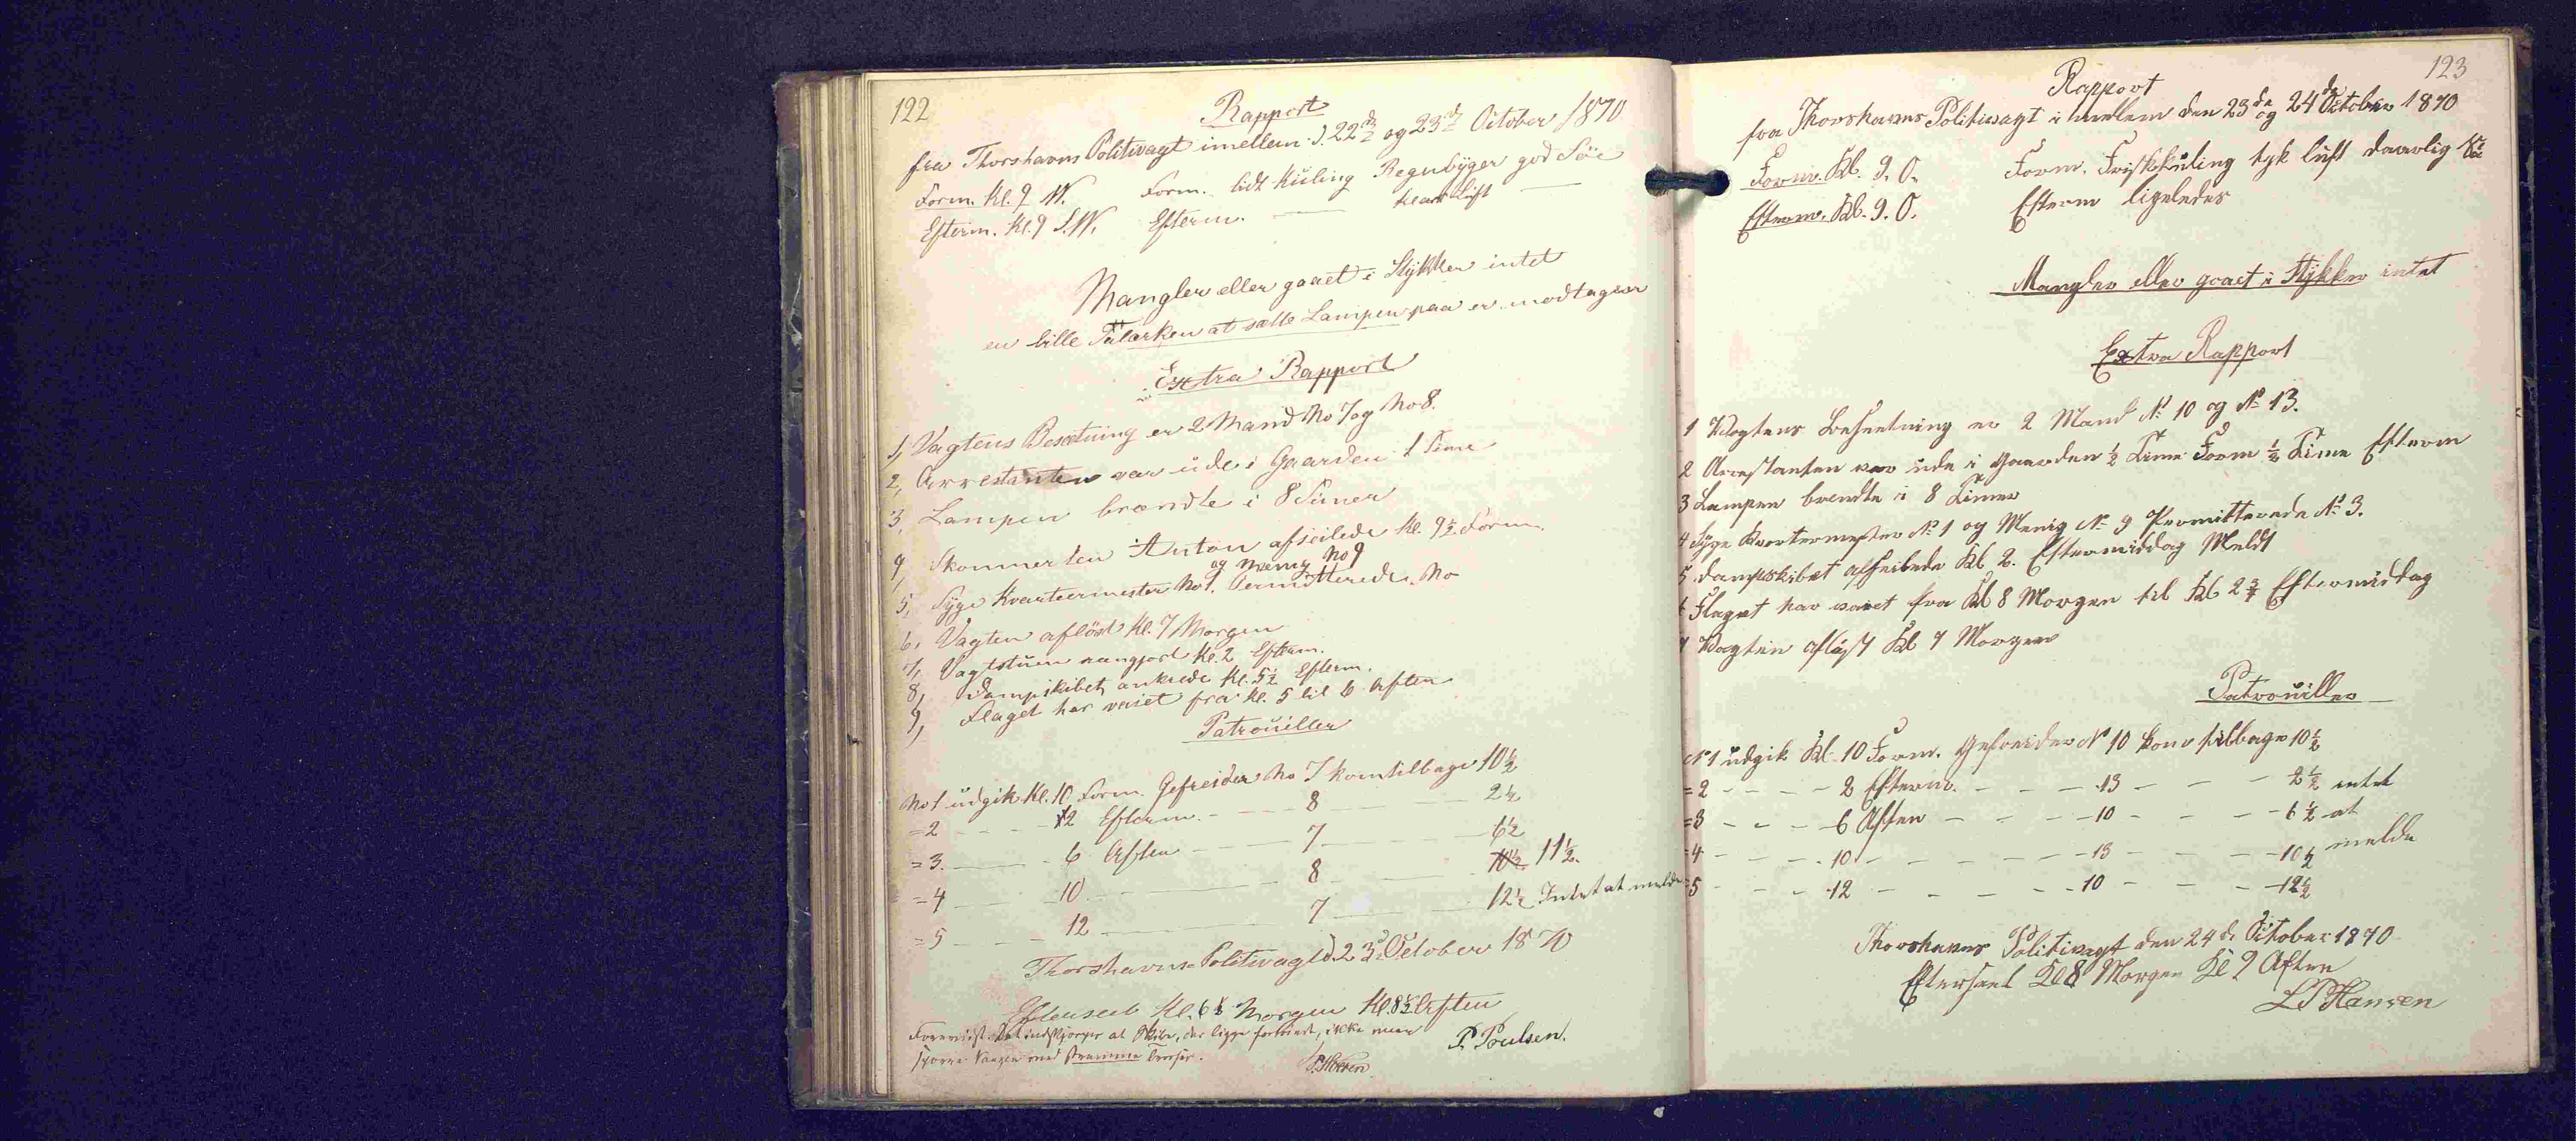 122
Rapport
fra Thorshavns Politivagt imellem d. 22d og 23d October 1870
Form. Kl. 9 W. Form. lidt Kuling Regnbyger god Søe
Efterm. Kl. 9 S.W. Efterm. — klar Luft —
Mangler eller gaaet i Stykker intet
en lille Talærken at sætte Lampen paa er modtaget
Extra Rapport
1, Vagtens Besætning er 2 Mand No 7 og No 8.
2, Arrestanten var ude i Gaarden 1 Time
3, Lampen brændte i 8 Timer
4, Skonnerten Anton afseilede Kl. 9½ Form.
og Menig No 9
5, Syge Kvarteermester No 1. Permitterede No
6, Vagten afløst Kl. 7 Morgen
7, Vagtstuen rengjort Kl. 2 Efterm.
8, Dampskibet ankrede Kl. 5½ Efterm.
9, Flaget har veiet fra Kl. 5 til 6 Aften
Patrouiller
No 1 udgik Kl. 10 Form. Gefreider No 7 kom tilbage 10½
=2 — 2 Efterm. — 8 — 2½
=3. — 6 Aften — 7 — 6½
=4 — 10 — 8 — 10½ 11½.
=5 — 12 — 7 — 12½ Intet at melde
Thorshavns Politivagt d. 23d October 1870
Efterseet Kl. 6½ Morgen Kl. 8½ Aften
P. Poulsen.
123
Rapport
fra Thorshavns Politivagt i mellem den 23de og 24de October 1870
Form. Kl. 9. O. Form. Friskkuling tyk luft daarlig Sø
Efterm. Kl. 9. O. Efterm ligeledes
Mangler eller gaaet i Stykker intet
Extra Rapport
1 Vagtens Besætning er 2 Mand No 10 og No 13.
2 Arrestanten var ude i Gaarden ½ Time Form ½ Time Efterm
3 Lampen brendte i 8 Timer
4 Syge Kvartermester No 1 og Menig No 9 Permitterede No 3.
5 Dampskibet afseilede Kl 2. Eftermiddag Meldt
6 Flaget har vaiet fra Kl 8 Morgen til Kl 2¾ Eftermiddag
7 Vagten afløst Kl 7 Morgen
Patrouiller
No 1 udgik Kl. 10 Form. Gefreider No 10 kom tilbage 10½
=2 - - - 2 Efterm. - - - 13 - - - 2½ intet
=3 - - - 6 Aften - - - 10 - - - 6½ at
=4 - - - 10 - - - 13 - - - 10½ melde
=5 - - - 12 - - - 10 - - - 12½
Thorshavns Politivagt den 24de October 1870
Efterseet Kl 8 Morgen Kl 9 Aften
L P Hansen